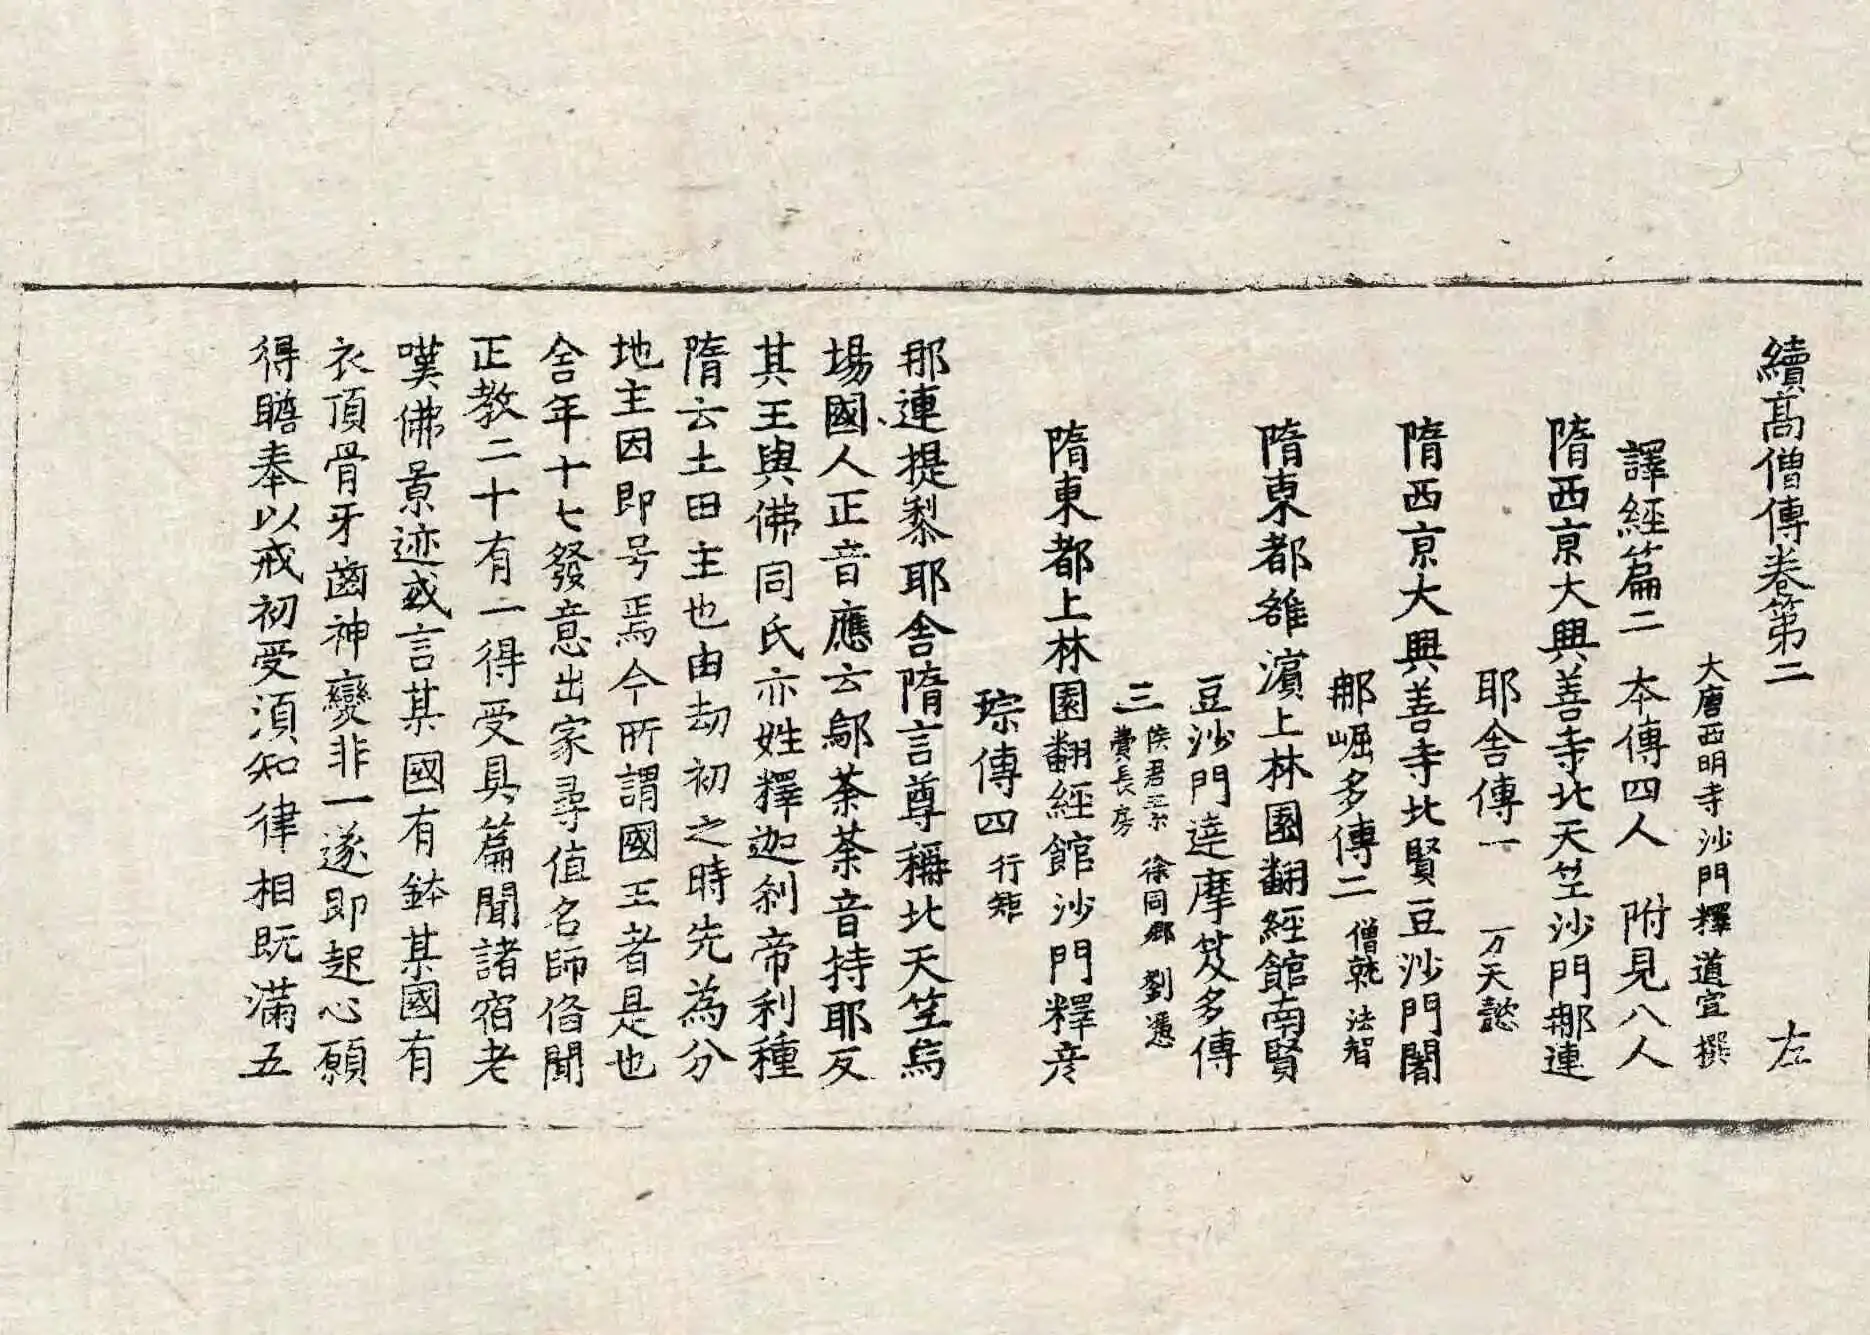 續高僧傳卷第二 左
大唐西明寺沙門釋道宣撰
譯經篇二 本傳四人 附見八人
隋西京大興善寺北天竺沙門那連
耶舍傳一 万天懿
隋西京大興善寺北賢豆沙門闍
那崛多傳二 僧就 法智
隋東都雒濱上林園翻經館南賢
豆沙門達摩笈多傳
三 侯君 徐同卿 劉憑
費長房
隋東都上林園翻經館沙門釋彦
琮傳四 行矩
那連提黎耶舍隋言尊稱北天竺烏
場國人正音應云鄔荼荼音持耶反
其王與佛同氏亦姓釋迦刹帝利種
隋云土田主也由劫初之時先為分
地主因即号焉今所謂國王者是也
舍年十七發意出家尋值名師俻聞
正教二十有一得受具篇聞諸宿老
嘆佛景迹或言某國有鉢某國有
衣頂骨牙齒神變非一遂即起心願
得瞻奉以戒初受須知律相既滿五